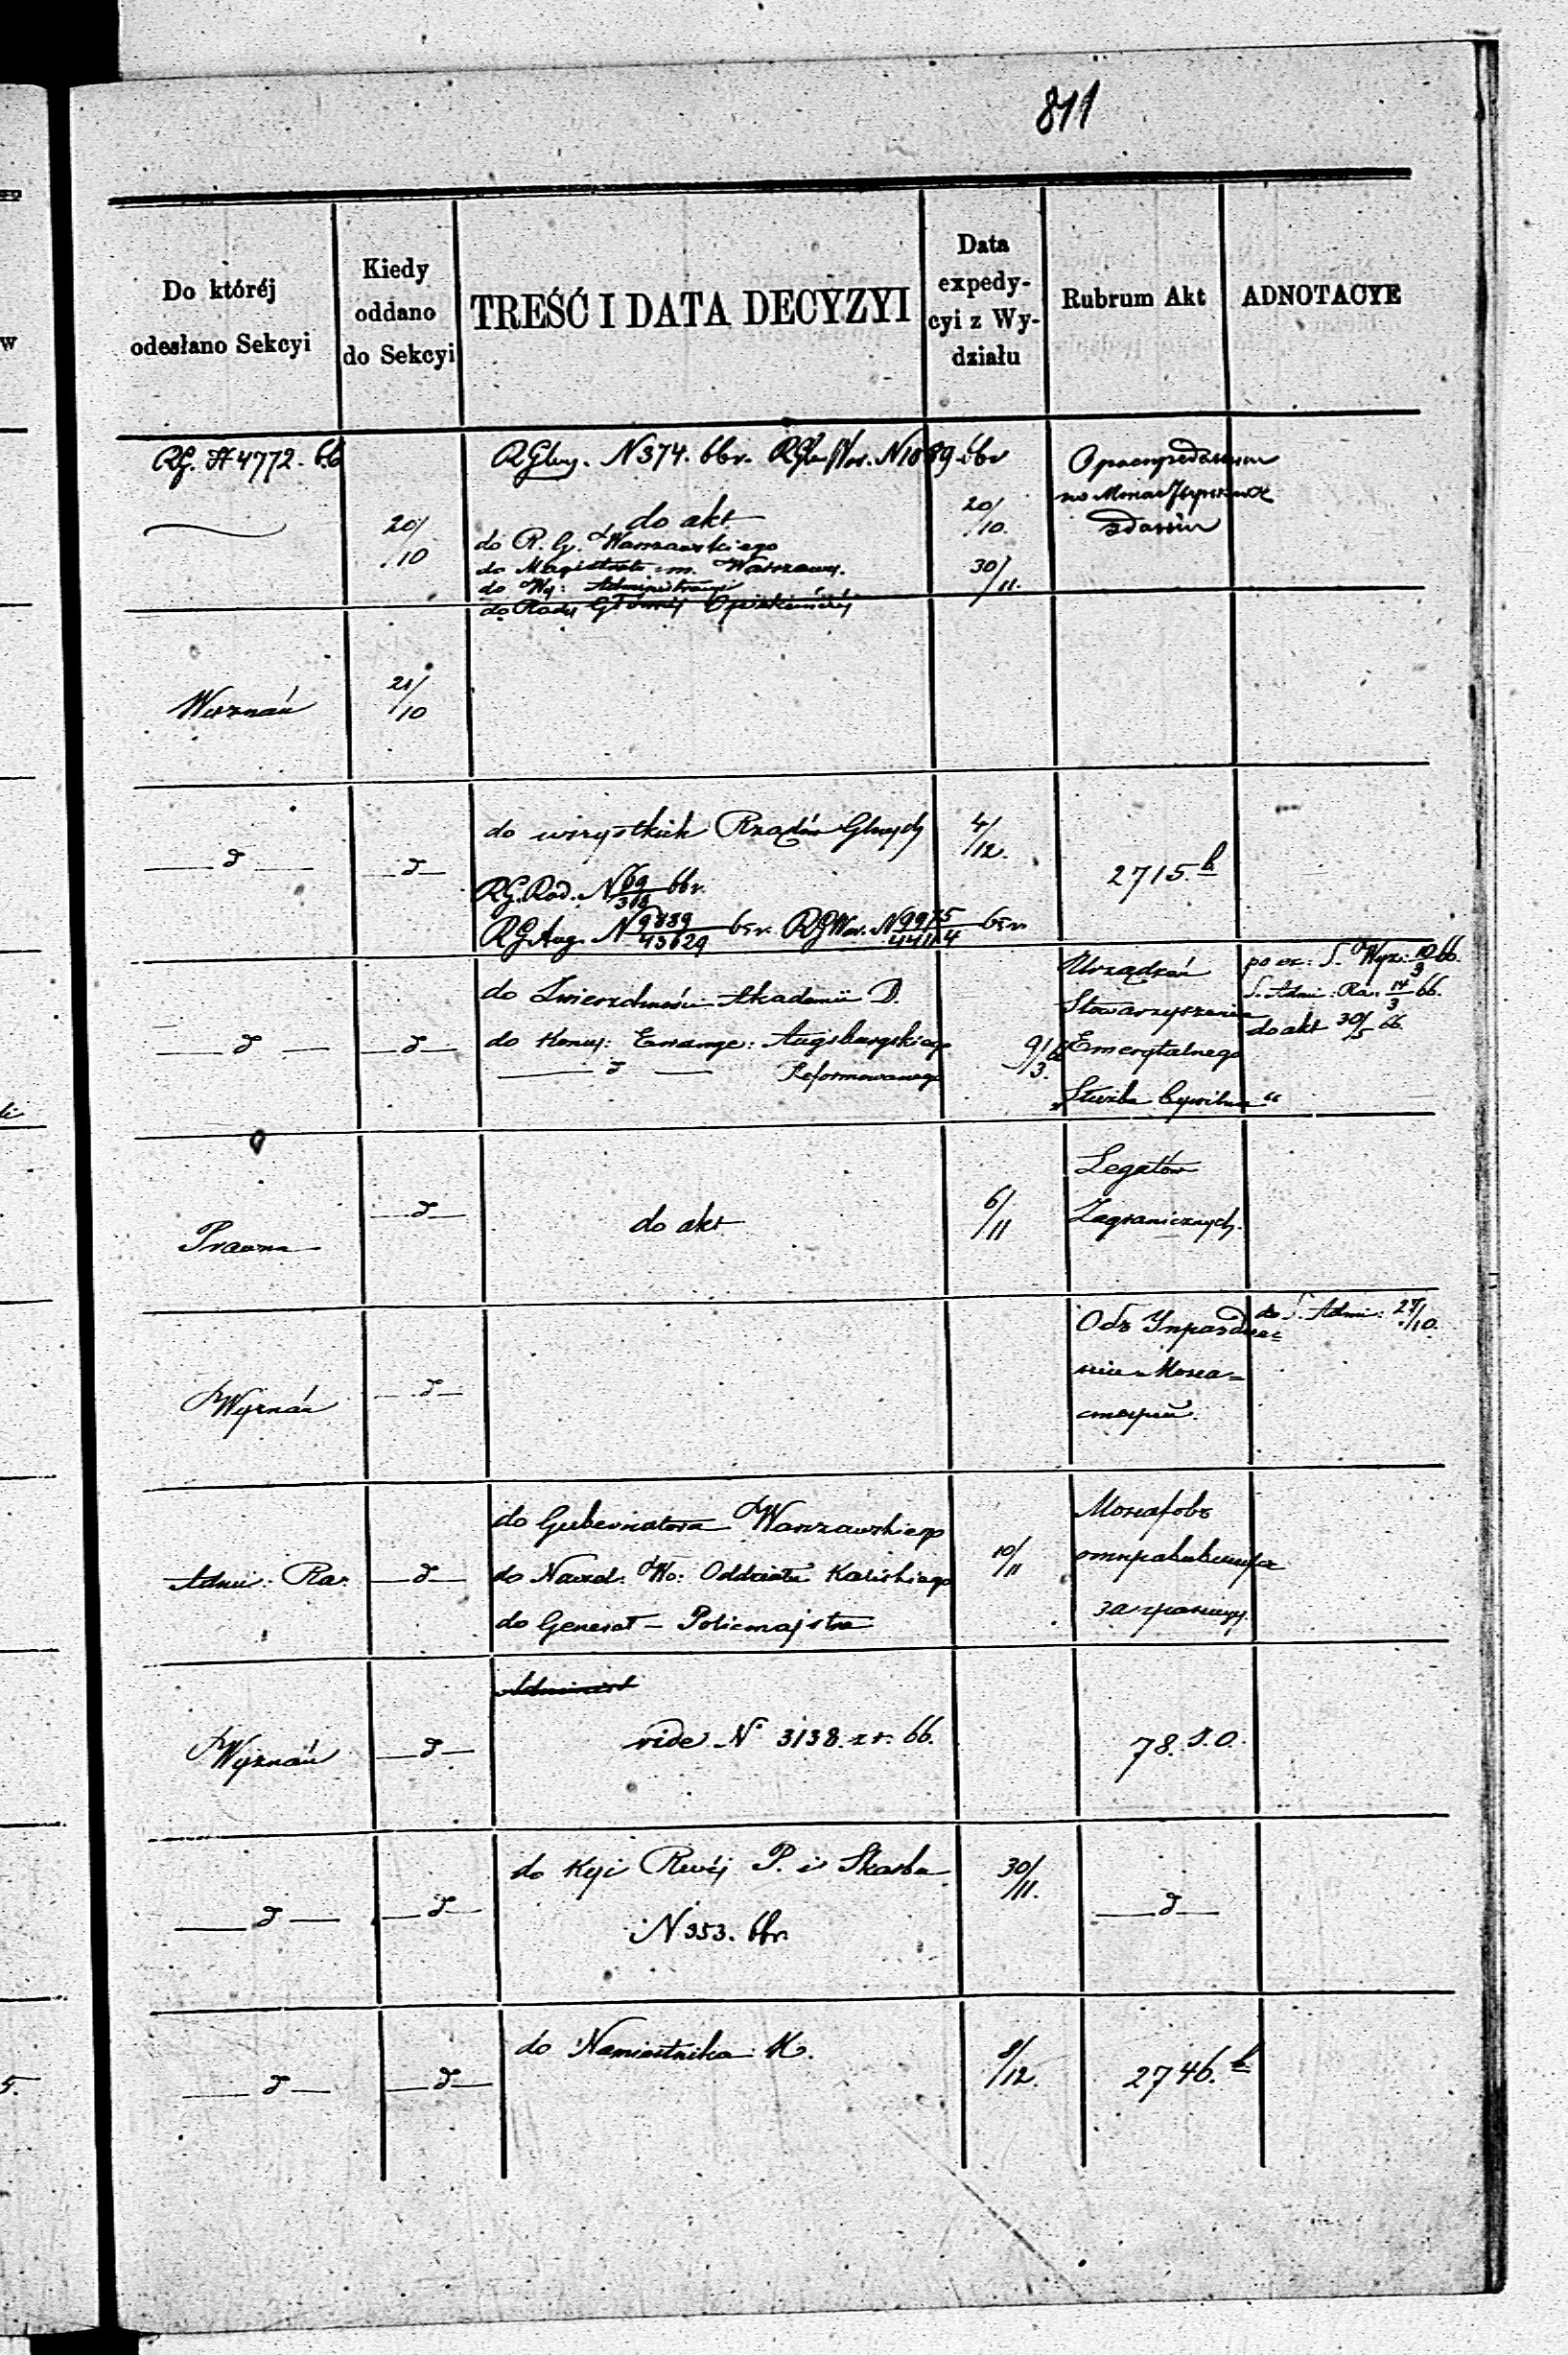 811
Do któréj
odesłano Sekcyi
Kiedy
oddano
do Sekcyi
TREŚĆ I DATA DECYZYI
Data
expedy-
cyi z Wy-
działu
Rubrum Akt
ADNOTACYE
RG. N 4772. 66
20/10
N 374. 66 r. N 1889
do akt
do R. G. Warszawskiego
do Magistratu m. Warszawy.
do Wy: Administracyi
do Rady Głównéj Opiekuńczéj
20/10.
30/11.
Wyznań
21/10
— d —
— d —
do wszystkich Rządów Gbnych
RG. Rad. N 69/318 66 r.
RG. Aug. N 9889/43629 65 r. RG War. N 9975/44114 65 r.
4/12.
2715. b
— d —
— d —
do Zwierzchności Akademii D.
do Konsy: Ewange: Augsburgskiego
— d — Reformowanego
9/3.
Urządzeń
Stowarzyszenia
Emerytalnego
„Służba Cywilna“
S. Wyz: 10/3 66.
S. Admi: Ra. 14/3 66.
do akt 30/5 66.
Prawna
— d —
do akt
6/11
Legatów
Zagranicznych.
Wyznań
— d —
Объ Упраздне=
нии Мона=
стырей.
do S. Admi: 27/10.
Admi: Ra:
— d —
do Gubernatora Warszawskiego
do Naczel: Wo: Oddziału Kaliskiego
do Generał - Policmajstra
10/11
Монаховъ
за границу.
Wyznań
— d —
Administ
vide N 3138. z r. 66.
78. S. O.
— d —
— d —
do Kyi Rwéj P. i Skarbu
N 353. 66 r.
30/11.
— d —
— d —
— d —
do Namiestnika K.
9/12.
2746. b